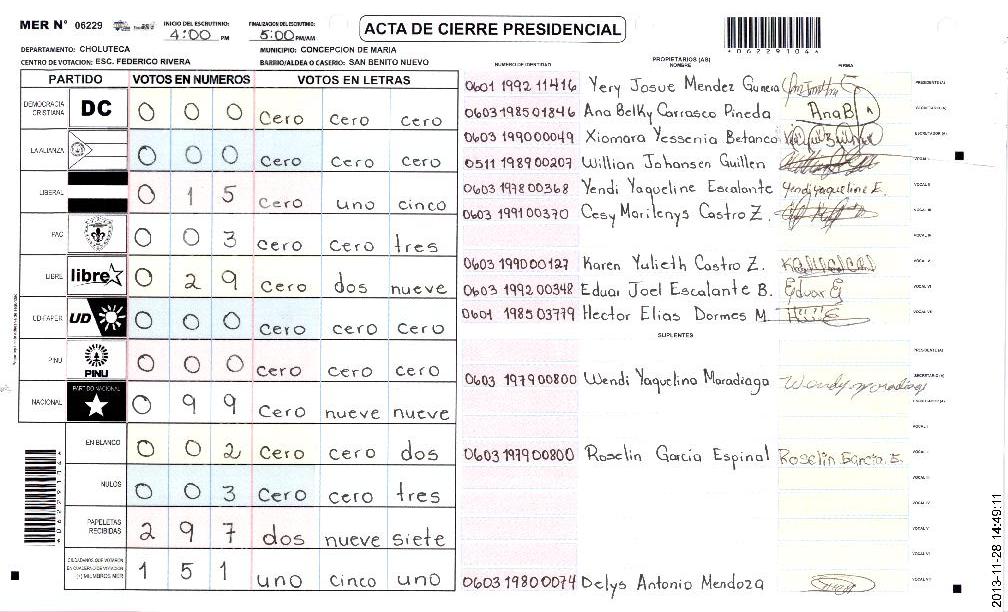 MER N° 06229 INICIO DEL ESCRUTINIO: 4:00 PM FINALIZACION DEL ESCRUTINIO: 5:00 PM/AM ACTA DE CIERRE PRESIDENCIAL
DEPARTAMENTO: CHOLUTECA MUNICIPIO: CONCEPCION DE MARIA
CENTRO DE VOTACION: ESC. FEDERICO RIVERA BARRIO/ALDEA O CASERIO: SAN BENITO NUEVO
PARTIDO VOTOS EN NUMEROS VOTOS EN LETRAS
DEMOCRACIA CRISTIANA DC 0 0 0 cero cero cero
LA ALIANZA 0 0 0 cero cero cero
LIBERAL 0 1 5 cero uno cinco
PAC 0 0 3 cero cero tres
LIBRE libre 0 2 9 cero dos nueve
UD-FAPER UD 0 0 0 cero cero cero
PINU PINU 0 0 0 cero cero cero
NACIONAL PARTIDO NACIONAL 0 9 9 cero nueve nueve
EN BLANCO 0 0 2 cero cero dos
NULOS 0 0 3 cero cero tres
PAPELETAS RECIBIDAS 2 9 7 dos nueve siete
CIUDADANOS QUE VOTARON EN CUADERNO DE VOTACION (+) MIEMBROS MER 1 5 1 uno cinco uno
PROPIETARIOS (AS)
NUMERO DE IDENTIDAD NOMBRE FIRMA
0601 1992 11416 Yery Josue Mendez Garcia PRESIDENTE(A)
0603 1985 01846 Ana Belky Carrasco Pineda AnaB SECRETARIO(A)
0603 1990 00049 Xiomara Yessenia Betanco ESCRUTADOR(A)
0511 1989 00207 Willian Johansen Guillen VOCAL I
0603 1978 00368 Yendi Yaqueline Escalante Yendi Yaqueline E. VOCAL II
0603 1991 00370 Cesy Marilenys Castro Z. VOCAL III
VOCAL IV
0603 1990 00127 Karen Yulieth Castro Z. VOCAL V
0603 1992 00348 Eduar Joel Escalante B. Eduar E VOCAL VI
0601 1985 03779 Hector Elias Dormes M. VOCAL VII
SUPLENTES
PRESIDENTE(A)
0603 1979 00800 Wendi Yaquelino Moradiaga Wendy moradiaga SECRETARIO(A)
ESCRUTADOR(A)
VOCAL I
0603 1979 00800 Roselin Garcia Espinal Roselin Garcia E. VOCAL II
VOCAL III
VOCAL IV
VOCAL V
VOCAL VI
0603 1980 00074 Delys Antonio Mendoza VOCAL VII
2013-11-28 14:49:11